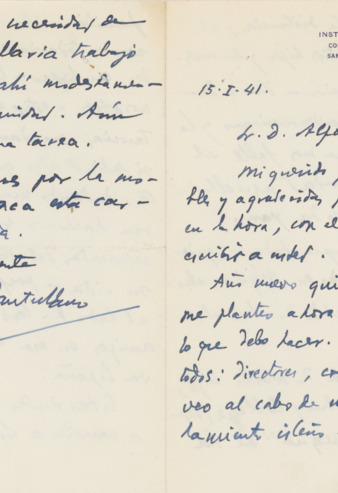 necesidad de
trabajo
ahí modestamen-
nidad. Aún
na tarea.
es por la mo-
esta car-
INST
CO
SAN
15·I·41.
Sr. D. Alfo
Mi querido
bles y agradecidas
en la hora, con el
escribir a usted.
Año nuevo qui
me planteo ahora
lo que debo hacer.
todos: directores, co
veo al cabo de
lamiento isleño